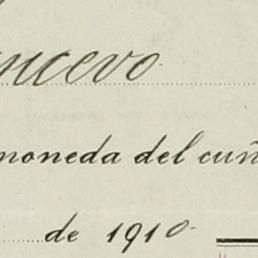 moneda del cuñ
de 1910